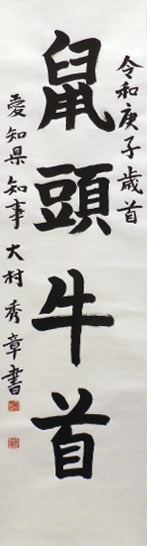 令和庚子歳首
鼠頭牛首
愛知県知事大村秀章書